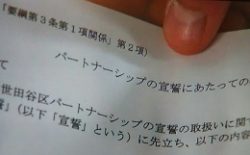 「要綱第3条第1項関係」第2項）
パートナーシップの宣誓にあたっての
て
世田谷区パートナーシップの宣誓の取扱いに関
」（以下「宣誓」という）に先立ち、以下の内容